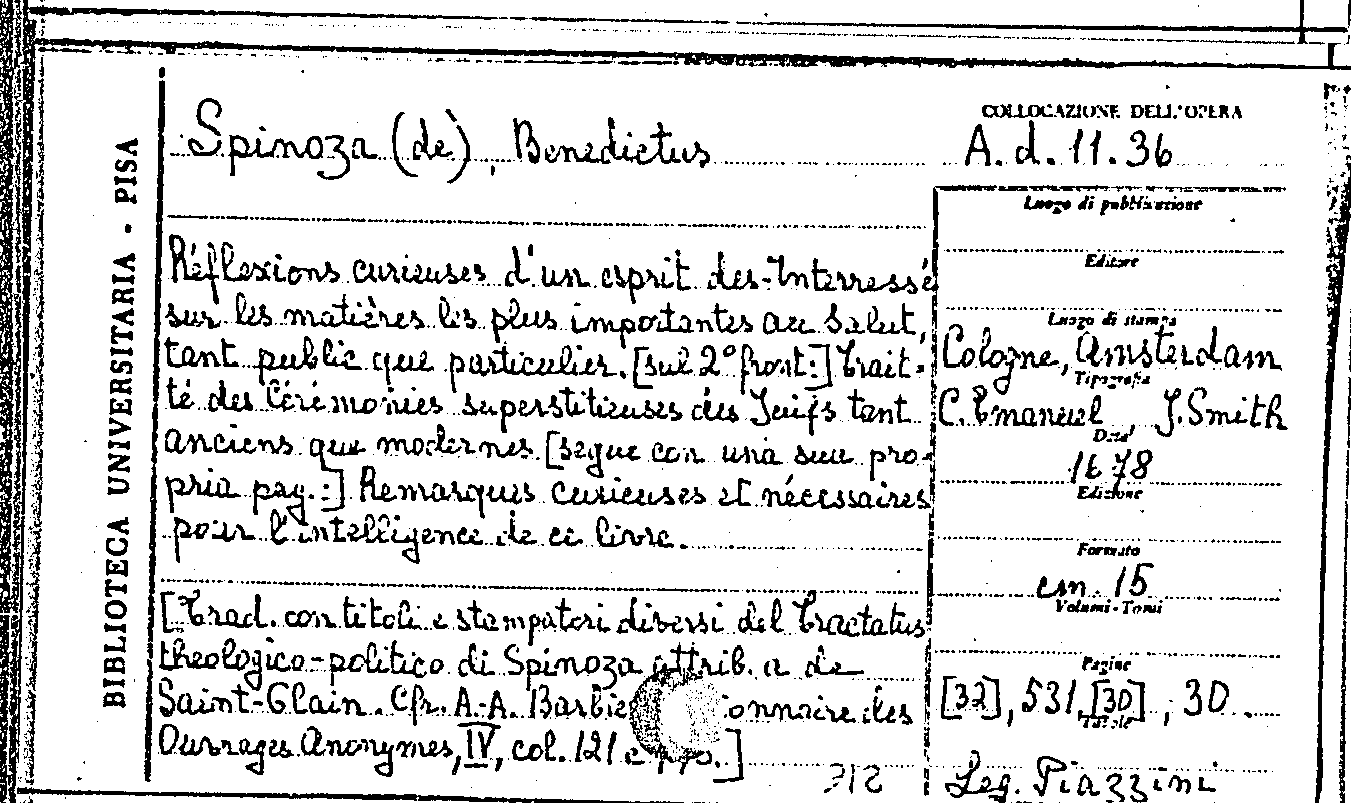 BIBLIOTECA UNIVERSITARIA - PISA
COLLOCAZIONE DELL'OPERA
Spinoza (de), Benedictus
A. d. 11. 36
Luogo di pubblicazione
Réflexions curieuses d'un esprit des-Interressé
Editore
sur les matières les plus importantes au Salut,
Luogo di stampa
tant public que particulier. [sul 2° front:] Trait-
Cologne, Amsterdam
Tipografia
té des Cérémonies superstitieuses des Juifs tant
C. Emanuel, J. Smith
Data
anciens que modernes [segue con una sua pro-
1678
Edizione
pria pag.:] Remarques curieuses et nécessaires
pour l'intelligence de ce livre.
Formato
cm. 15
Volumi - Tomi
[Trad. con titoli e stampatori diversi del Tractatus
theologico-politico di Spinoza attrib. a de
Pagine
Saint-Glain. Cfr. A.-A. Barbie onnaire des
[32], 531, [30], 30.
Tavole
Ouvrages Anonymes, IV, col. 121 e pp.]
Leg. Piazzini